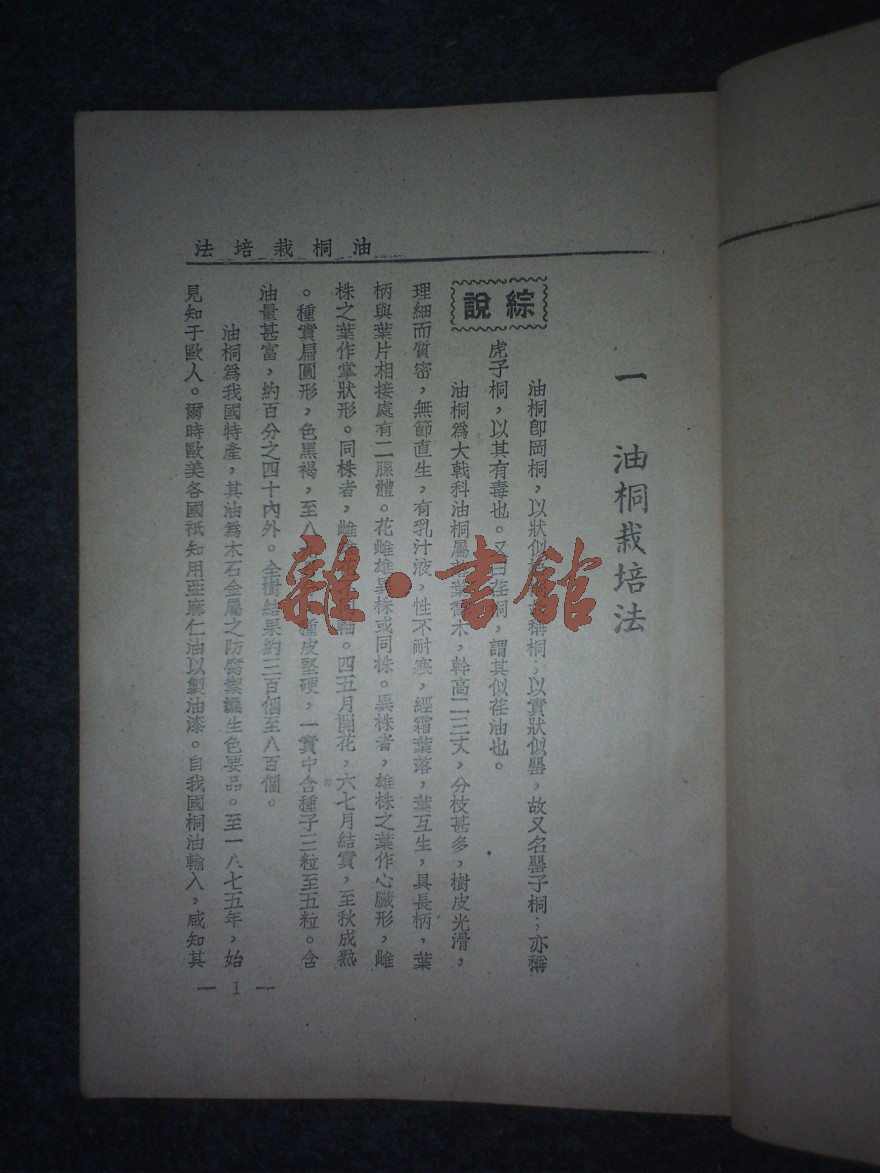 油桐栽培法
一 油桐栽培法
綜說
油桐卽岡桐，以狀似稱桐；以實狀似罌，故又名罌子桐；亦稱
虎子桐，以其有毒也。又曰荏桐，謂其似荏油也。
油桐爲大戟科油桐屬落葉喬木，幹高二三丈，分枝甚多，樹皮光滑，
理細而質密，無節直生，有乳汁液，性不耐寒，經霜葉落，葉互生，具長柄，葉
柄與葉片相接處有二腺體。花雌雄異株或同株。異株者，雄株之葉作心臟形，雌
株之葉作掌狀形。同株者，雌同軸。四五月開花，六七月結實，至秋成熟
。種實扁圓形，色黑褐，至八種皮堅硬，一實中含種子三粒至五粒。含
油量甚富，約百分之四十內外。全樹結果約三百個至八百個。
油桐爲我國特產，其油爲木石金屬之防腐禦濕生色要品。至一八七五年，始
見知于歐人。爾時歐美各國祇知用亞麻仁油以製油漆。自我國桐油輸入，咸知其
— 1 —
雜·書館